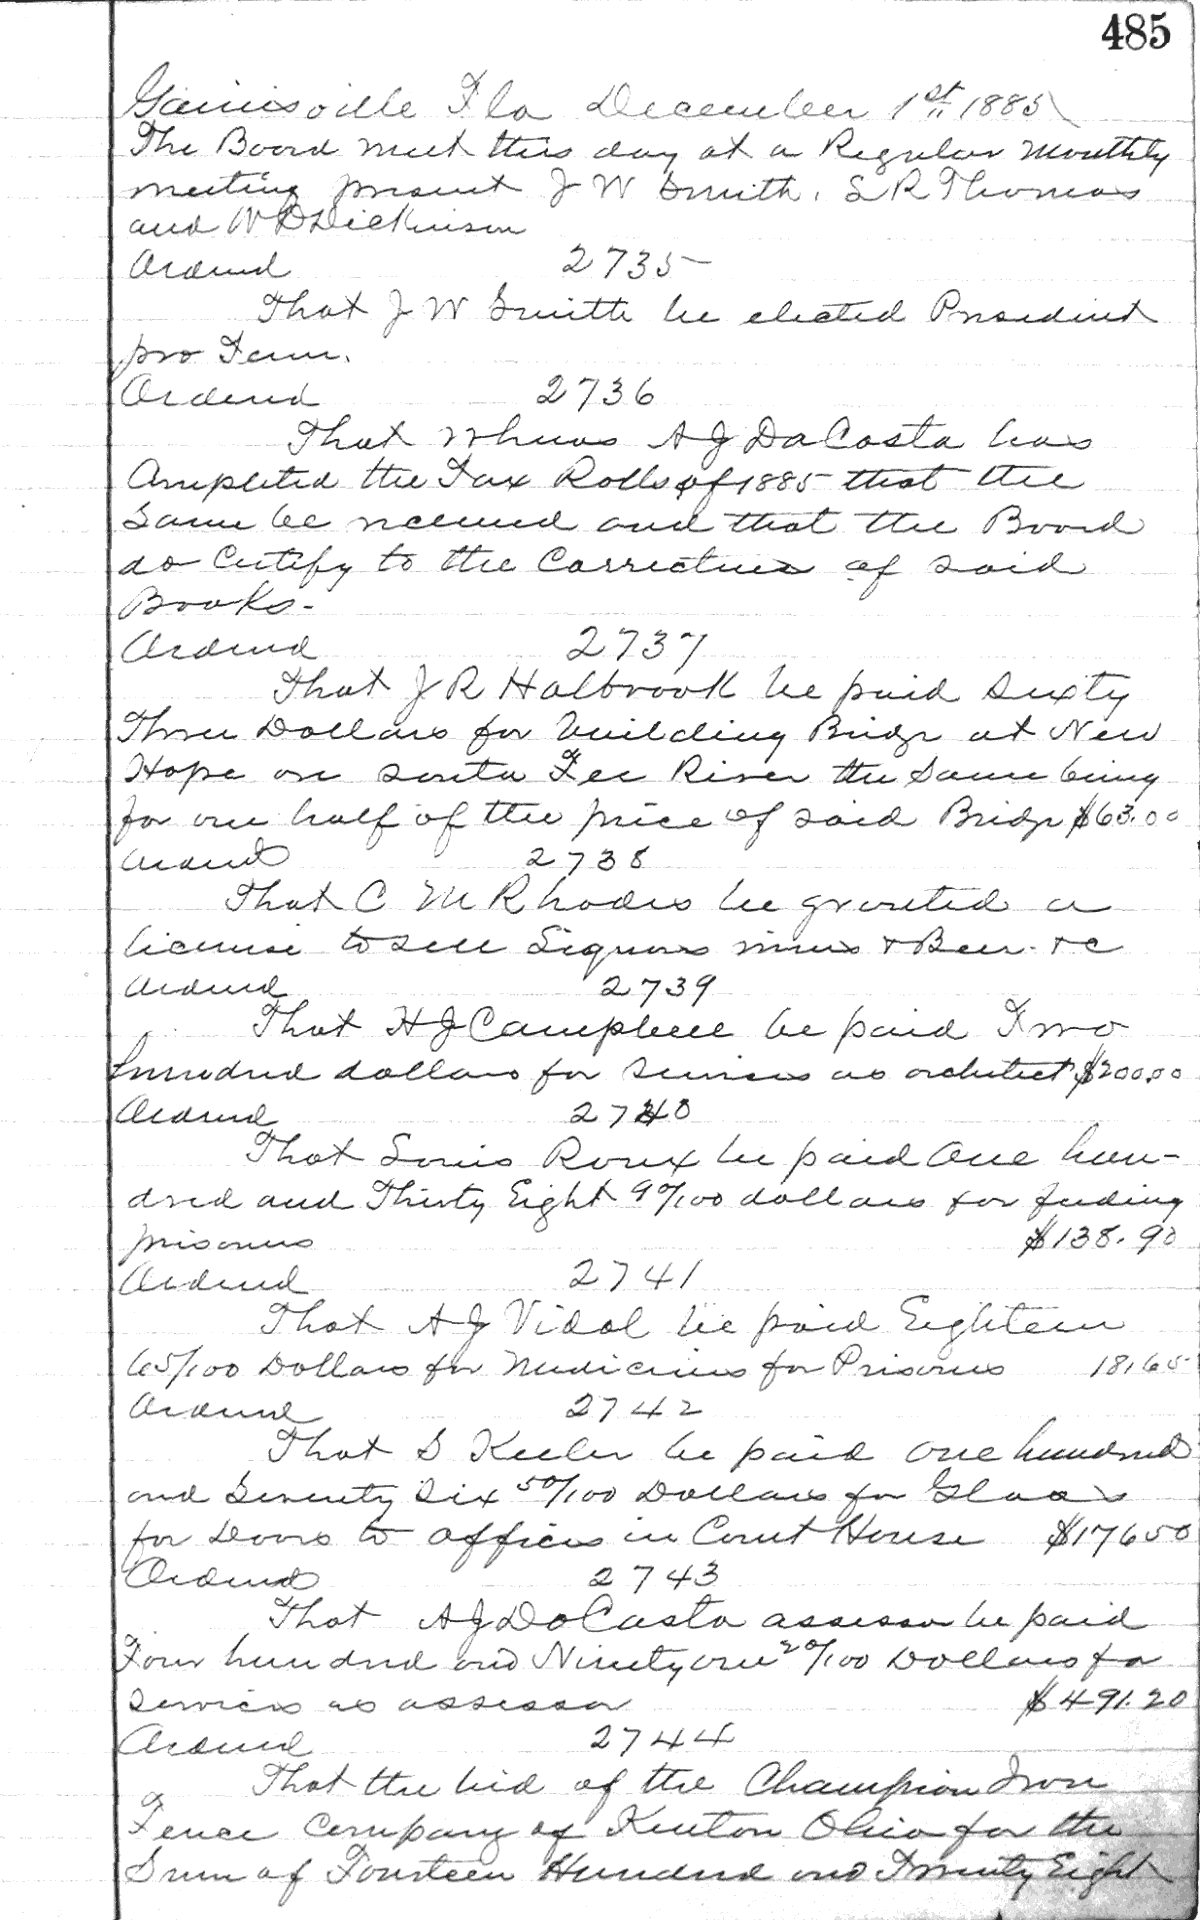 485
Gainesville Fla December 1st 1885
The Board meet this day at a Regular monthly
meeting present J W Smith, S R Thomas
and W D Dickinson
Ordered 2735
That J W Smith be elected President
pro Tem.
Ordered 2736
That Whereas A J DaCosta has
Completed the Tax Rolls of 1885 that the
Same be received and that the Board
do Certify to the Correctness of said
Books.
Ordered 2737
That J R Halbrook be paid Sixty
Three Dollars for building Bridge at New
Hope on Santa Fee River the Same being
for one half of the price of said Bridge $63.00
Ordered 2738
That C M Rhodes be granted a
license to sell Liquors wines & Beer &c
Ordered 2739
That H J Campbell be paid Two
hundred dollars for Services as architect $200.00
Ordered 2740
That Louis Roux be paid One hun-
dred and Thirty Eight 90/100 dollars for feeding
prisoners $138.90
Ordered 2741
That A J Vidal be paid Eighteen
65/100 Dollars for Medicines for Prisoners 18.65
Ordered 2742
That S Keeler be paid one hundred
and Seventy Six 50/100 Dollars for Glass
for Doors to offices in Court House $176 50
Ordered 2743
That A J DaCosta assessor be paid
Four hundred and Ninety one 20/100 Dollars for
Services as assessor $491.20
Ordered 2744
That the bid of the Champion Iron
Fence Company of Kenton Ohio for the
Sum of Fourteen Hundred and Twenty Eight